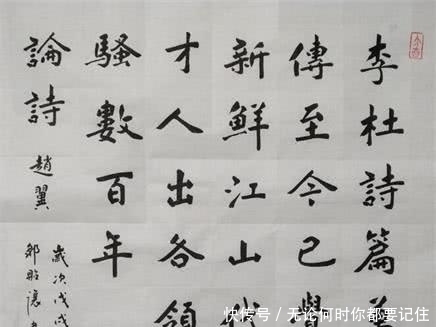 李杜詩篇萬
傳至今已覺
新鮮江山代
才人出各領
騷數百年
論詩 趙翼
歲次戊戌
快传号/无论何时你都要记住